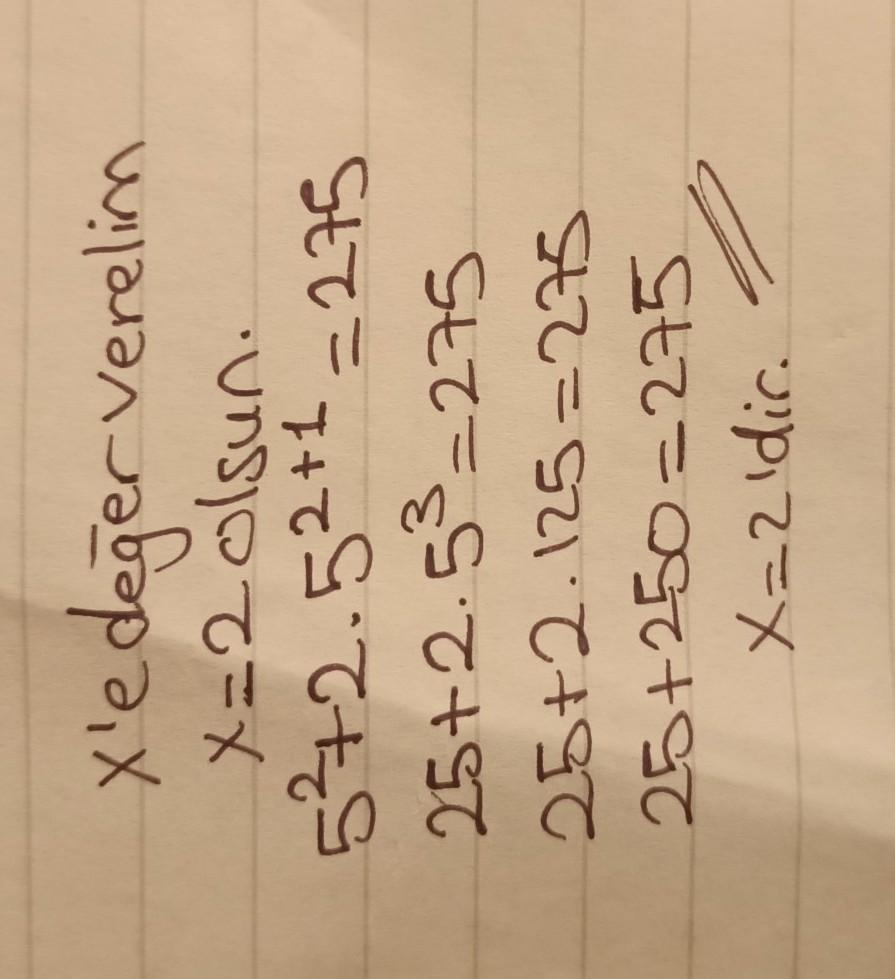 x'e değer verelim
x=2 olsun.
5²+2.5²⁺¹=275
25+2.5³=275
25+2.125=275
25+250=275
x=2'dir.